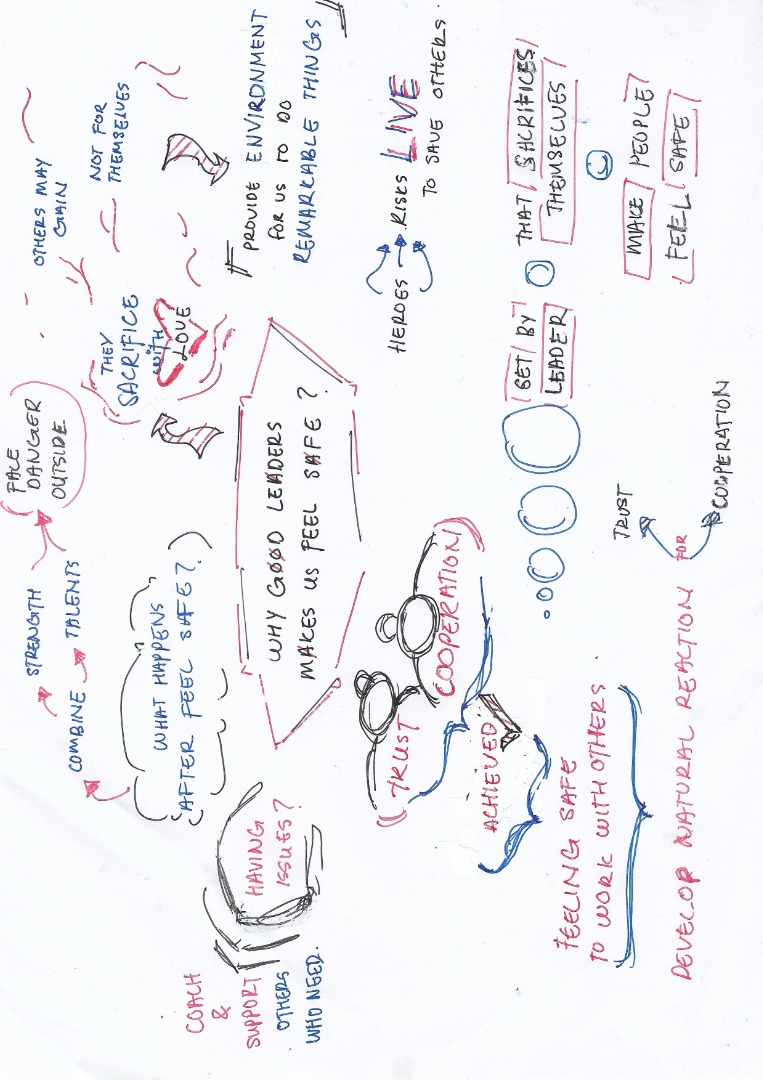 STRENGTH
COMBINE
TALENTS
FACE
DANGER
OUTSIDE
OTHERS MAY
GAIN
NOT FOR
THEMSELVES
THEY
SACRIFICE
WITH
LOVE
WHAT HAPPENS
AFTER FEEL SAFE?
COACH
&
SUPPORT
OTHERS
WHO NEED.
HAVING
ISSUES?
WHY GOOD LEADERS
MAKES US FEEL SAFE ?
PROVIDE ENVIRONMENT
FOR US TO DO
REMARKABLE THINGS
TRUST
COOPERATION
ACHIEVED
HEROES
RISKS LIVE
TO SAVE OTHERS.
FEELING SAFE
TO WORK WITH OTHERS.
SET BY
LEADER
THAT SACRIFICES
THEMSELVES
MAKE PEOPLE
FEEL SAFE
DEVELOP NATURAL REACTION FOR
TRUST
COOPERATION